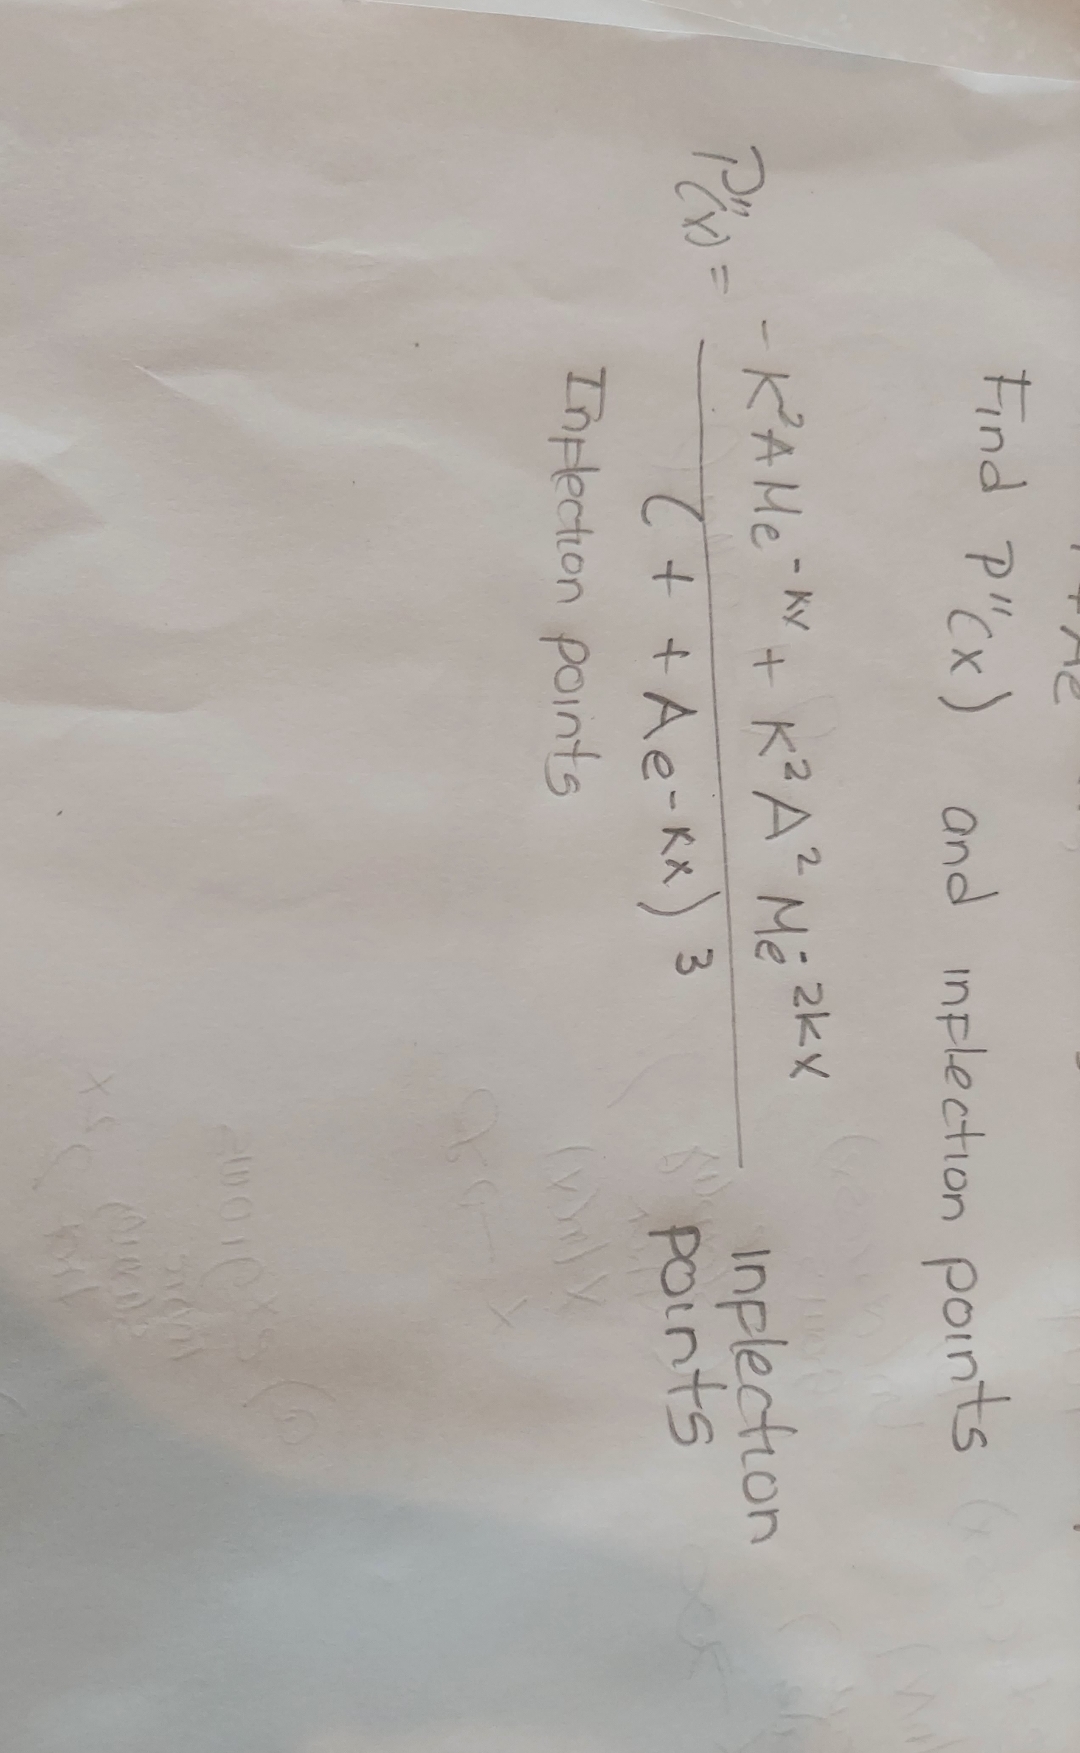 1 + Ae
Find P''(x) and inflection points
P''(x) = -K²AMe^-kx + K²A²Me^-2kx
( + + Ae^-kx)³
inflection
points
Inflection points